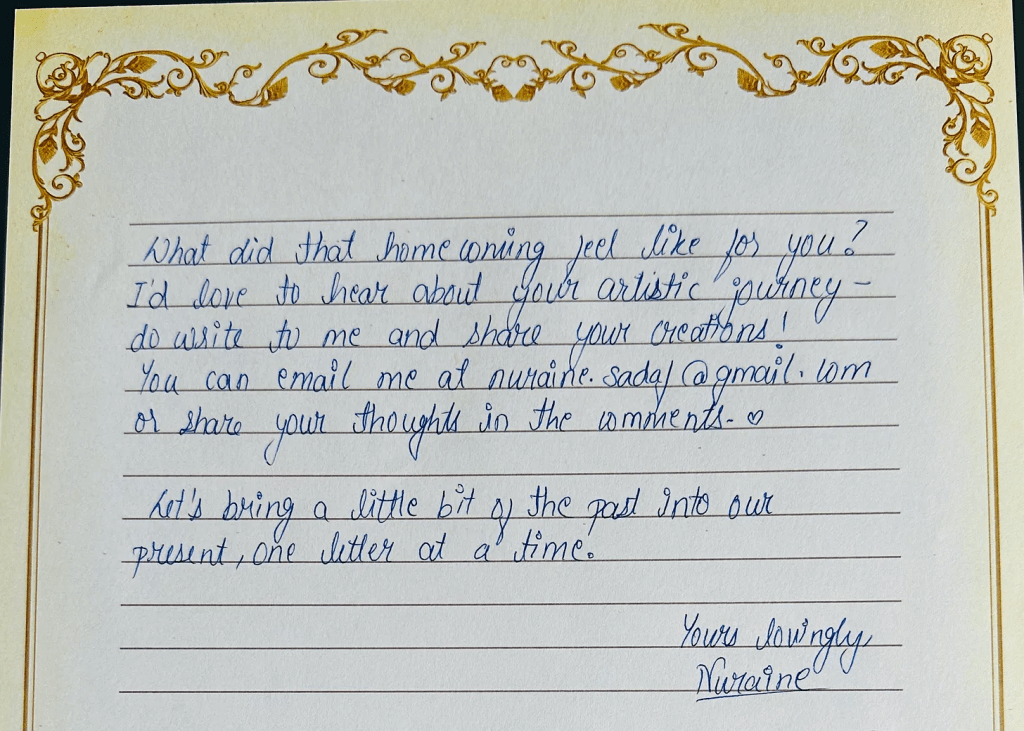 What did that homecoming feel like for you?
I'd love to hear about your artistic journey –
do write to me and share your creations!
You can email me at nuraine.sadaf@gmail.com
or share your thoughts in the comments. ♡
Let's bring a little bit of the past into our
present, one letter at a time.
Yours lovingly,
Nuraine